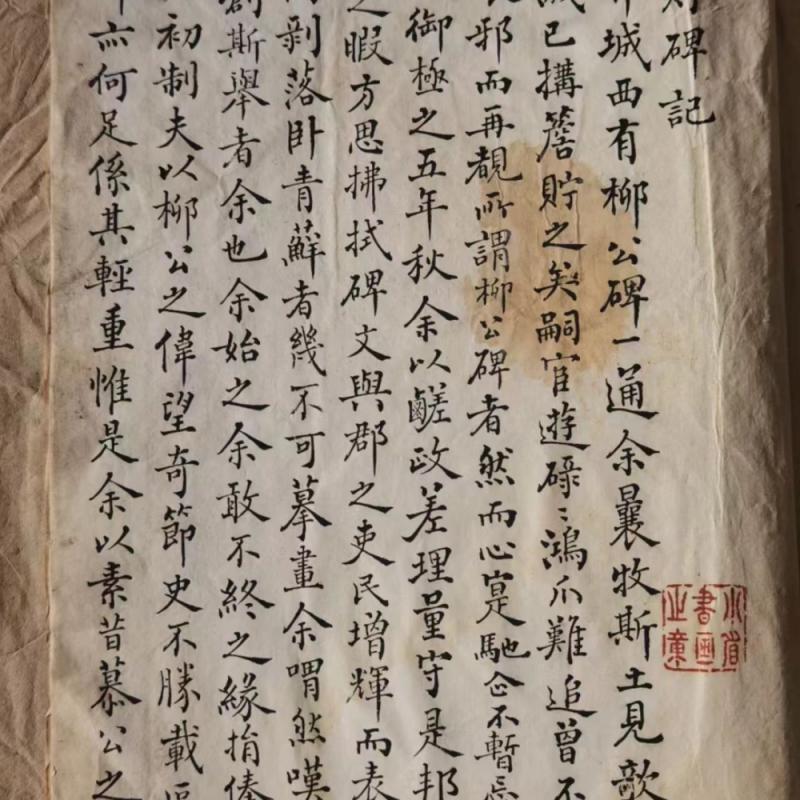 碑記
城西有柳公碑一通余曩牧斯土見欹
已搆簷貯之矣嗣宦遊碌〻鴻爪難追曾不
邪而再覩所謂柳公碑者然而心寔馳㐰不暫忘
御極之五年秋余以鹺政差理量守是邦
之暇方思拂拭碑文與郡之吏民增輝而表
剝落卧青蘚者幾不可摹畫余喟然嘆
斯舉者余也余始之余敢不終之緣捐俸
初制夫以柳公之偉望奇節史不勝載
亦何足係其輕重惟是余以素昔慕公之
書画